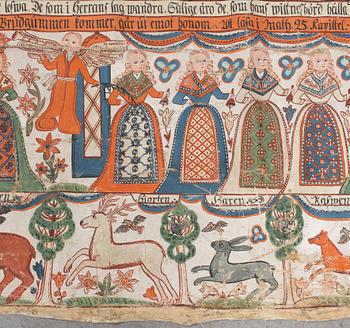 lefwa. De som i Herrans lag wandra. Salige äro de, som hans wittnesbörd hålla
Brudgummen kommer, går ut emot honom. Att läsa i Math: 25 Kapitlet.
Hiorten
Haren
Räfwen